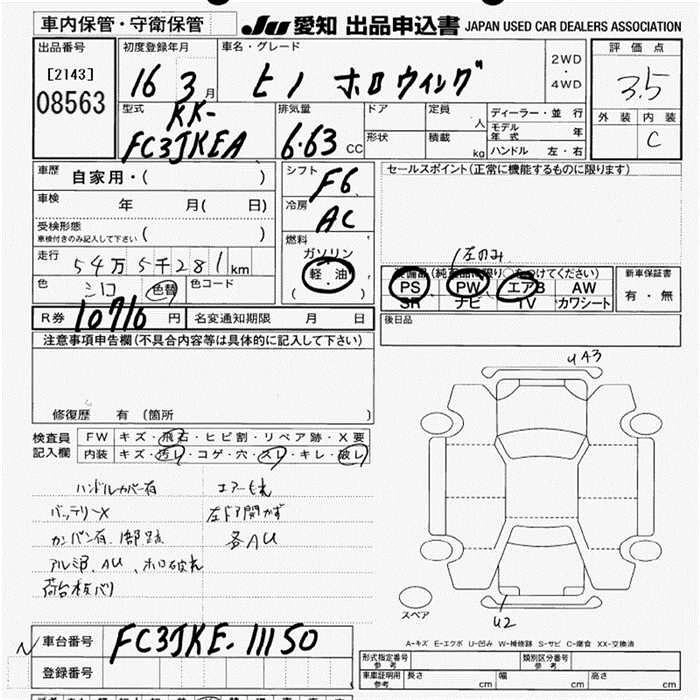 車内保管・守衛保管
JU 愛知 出品申込書 JAPAN USED CAR DEALERS ASSOCIATION
出品番号
[2143]
08563
初度登録年月
16 3 月
車名・グレード
ヒノ ホロウィング
2WD
・
4WD
評価点
3.5
外装 内装
C
型式
KK-
FC3JKEA
排気量
6.63 CC
ドア
定員
人
形状
積載
kg
ディーラー・並行
モデル年式 年
ハンドル 左・右
車歴
自家用・( )
車検
年 月( 日)
受検形態
車検付きのみ記入して下さい ( )
走行
54万5千281km
色
シロ 色替
色コード
シフト
F6
冷房
AC
燃料
ガソリン
軽油
( )
セールスポイント(正常に機能するものに限ります)
左のみ
装備品(純正品に限り○をつけてください)
PS PW エアB AW
SR ナビ TV カワシート
新車保証書
有・無
R券 10710 円
名変通知期限 月 日
後日品
注意事項申告欄(不具合内容等は具体的に記入して下さい)
修復歴 有(箇所 )
検査員記入欄
FW キズ・飛石・ヒビ割・リペア跡・X要
内装 キズ・汚レ・コゲ・穴・スレ・キレ・破レ
ハンドルカバー有 エアーもれ
バッテリーX 左ドア開かず
カンバン有、 各AU
アルミ
荷台板バリ
UA3
U2
スペア
A-キズ E-エクボ U-凹み W-補修跡 S-サビ C-腐食 XX-交換済
車台番号 FC3JKE-11150
登録番号
形式指定番号 参考
類別区分番号 参考
車庫証明用 参考 長さ cm 幅 cm 高さ cm